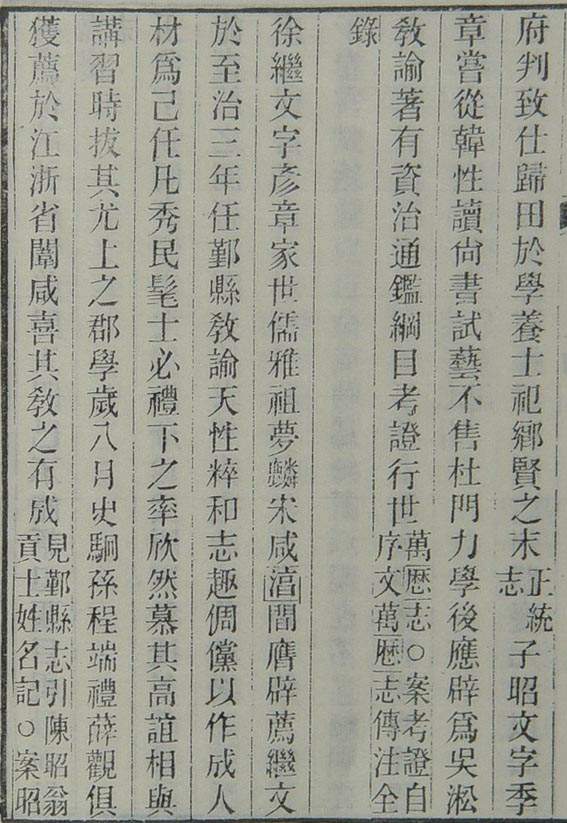 府判致仕歸田於學養士祀鄉賢之末正統志子昭文字季
章嘗從韓性讀尙書試藝不售杜門力學後應辟爲吳淞
敎諭著有資治通鑑綱目考證行世萬歷志○案考證自序文萬歷志傳注全
錄
徐繼文字彥章家世儒雅祖夢麟宋咸淳間膺辟薦繼文
於至治三年任鄞縣敎諭天性粹和志趣倜儻以作成人
材爲己任凡秀民髦士必禮下之率欣然慕其高誼相與
講習時拔其尤上之郡學歲八月史駉孫程端禮薛觀俱
獲薦於江浙省闈咸喜其敎之有成見鄞縣志引陳昭翁貢士姓名記○案昭